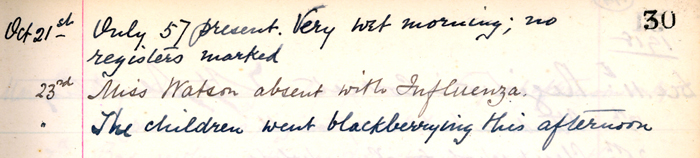 30
Oct 21st Only 57 present. Very wet morning; no
registers marked
23rd Miss Watson absent with Influenza.
" The children went blackberrying this afternoon